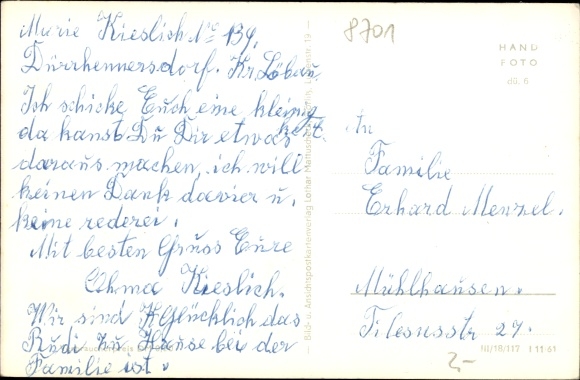 Marie Kieslich No 139.
Dürrhennersdorf. Kr. Löbau
Ich schicke Euch eine kleinig
keit.
da kanst Du Dir etwas
daraus machen, ich will
keinen Dank davier u.
keine rederei.
Mit besten Gruss Eure
Ohma Kieslich.
Wir sind Glücklich das
Rudi zu Hause bei der
Familie ist.
8701
HAND
FOTO
dü. 6
An
Familie
Erhard Menzel.
Mühlhausen.
Filesusstr 27.
III/18/117 1 11 61
2,-